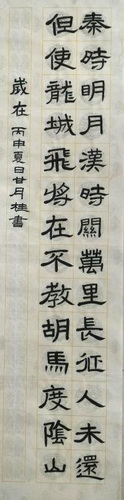 秦時明月漢時關萬里長征人未還
但使龍城飛將在不教胡馬度陰山
歲在丙申夏日廿月桂書